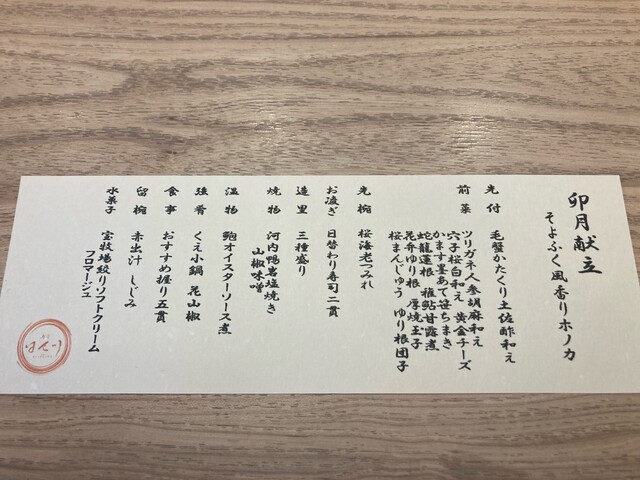 卯月献立
そよふく風香りホノカ
先付 毛蟹かたくり土佐酢和え
前菜 ツリガネ人参胡麻和え
穴子桜白和え 黄金チーズ
かます墨あて笹ちまき
蛇籠蓮根 稚鮎甘露煮
花弁ゆり根 厚焼玉子
桜まんじゅう ゆり根団子
先椀 桜海老つみれ
お凌ぎ 日替わり寿司二貫
造里 三種盛り
焼物 河内鴨岩塩焼き
山椒味噌
温物 鮑オイスターソース煮
強肴 くえ小鍋 花山椒
食事 おすすめ握り五貫
留椀 赤出汁 しじみ
水菓子 宝牧場絞りソフトクリーム
フロマージュ